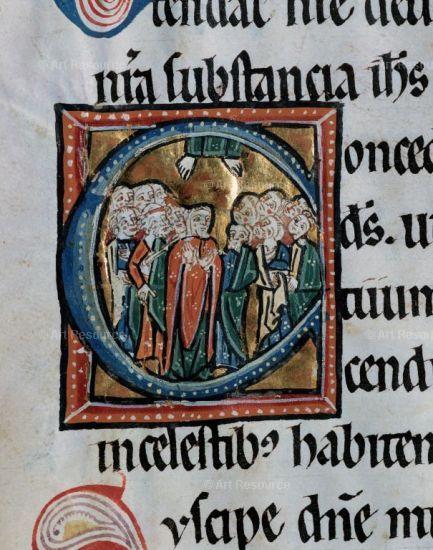 tendat hic dedu
nr̃a substancia ih̃s
C oncede
ds̄. ut
tuum
cendı
in celestibꝰ habitem
uscipe dn̄e mu
© Art Resource
© Art Resource
© Art Resource
© Art Resource
© Art Resource